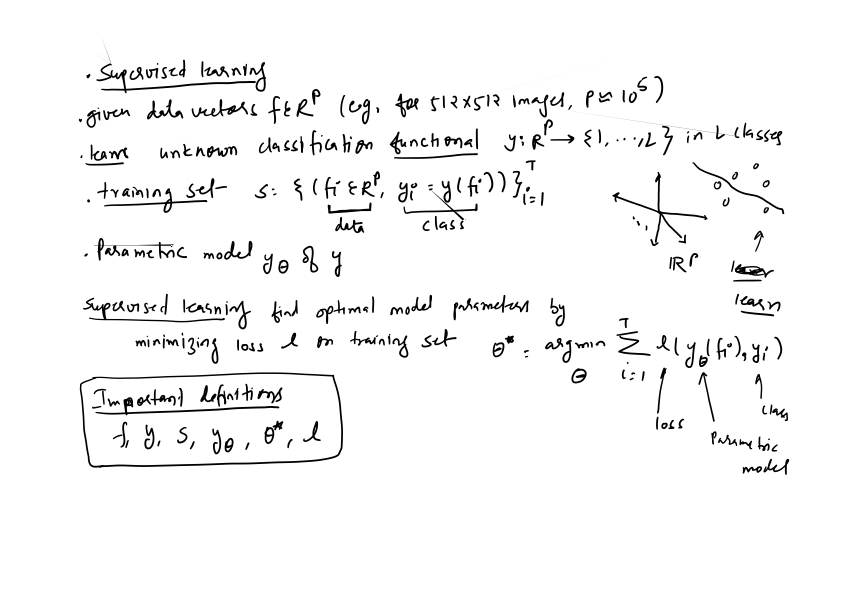 . Supervised learning
. given data vectors f∈R^P (e.g. for 512x512 images, P≈10^5)
. learn unknown classification functional y: R^P → {1, ..., L} in L classes
. training set S: {(fi ∈ R^P, yi = y(fi))}_{i=1}^T
data class
IR^P
learn
. Parametric model yθ of y
Supervised learning find optimal model parameters by
minimizing loss l on training set θ* = argmin_θ Σ_{i=1}^T l(yθ(fi), yi)
loss
Parametric model
class
Important definitions
f, y, S, yθ, θ*, l